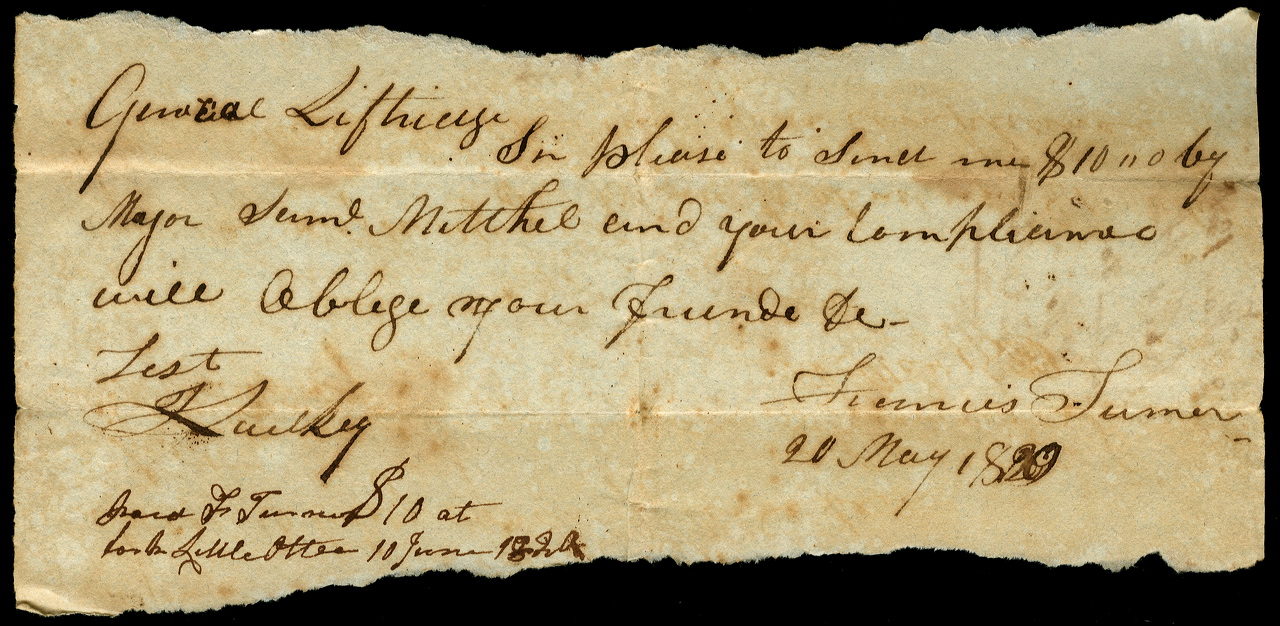 General Liftriedge
Sir please to send me $10 " 0 by
Major Saml. Mitchel and your Complianac
will Oblege your Friende &c-
Test
Francis Turner
20 May 1820
F Turner $10 at
Little Otter 10 June 1820